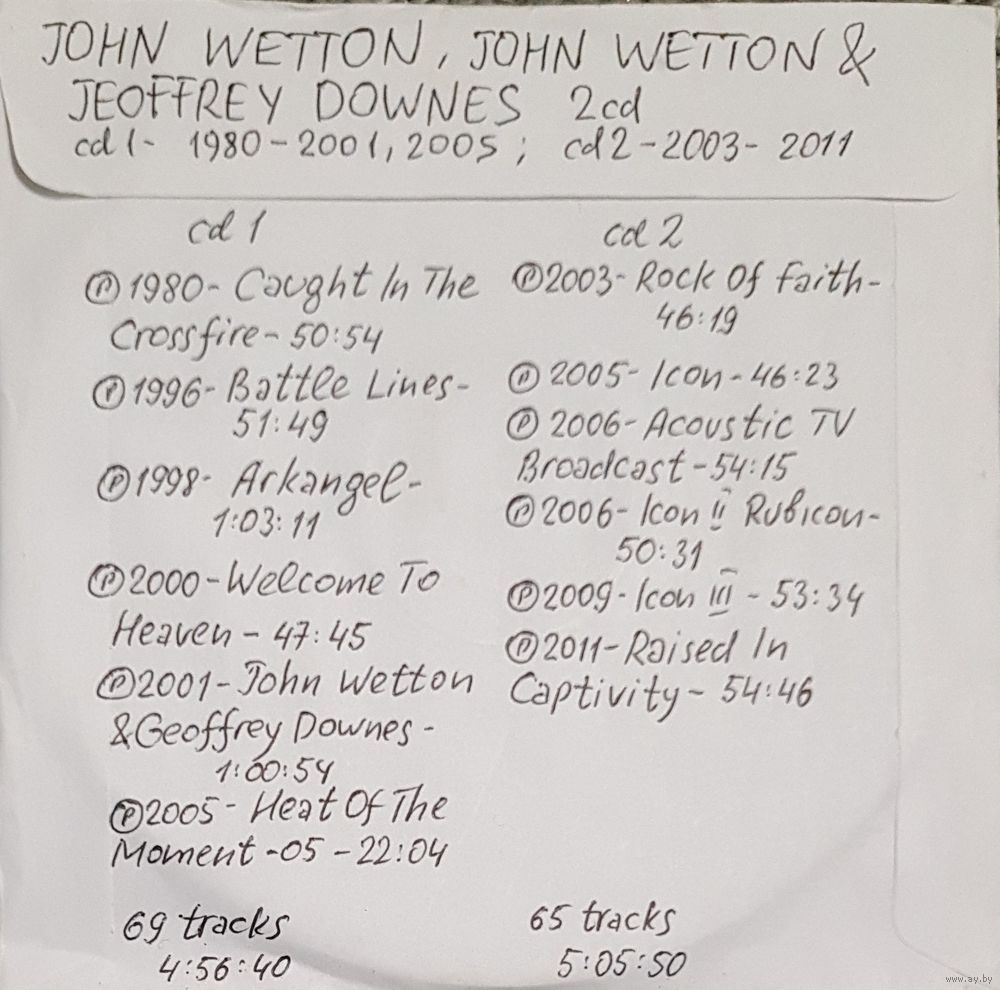 JOHN WETTON, JOHN WETTON &
JEOFFREY DOWNES 2cd
cd 1- 1980-2001, 2005; cd2-2003-2011
cd 1
℗1980- Caught In The
Crossfire- 50:54
℗1996- Battle Lines-
51:49
℗1998- Arkangel-
1:03:11
℗2000-Welcome To
Heaven - 47:45
℗2001-John Wetton
&Geoffrey Downes -
1:00:54
℗2005- Heat Of The
Moment -05 -22:04
69 tracks
4:56:40
cd 2
℗2003-Rock Of Faith-
46:19
℗ 2005- Icon-46:23
℗ 2006-Acoustic TV
Broadcast-54:15
℗2006-Icon II Rubicon-
50:31
℗2009-Icon III - 53:34
℗2011-Raised In
Captivity- 54:46
65 tracks
5:05:50
www.ay.by